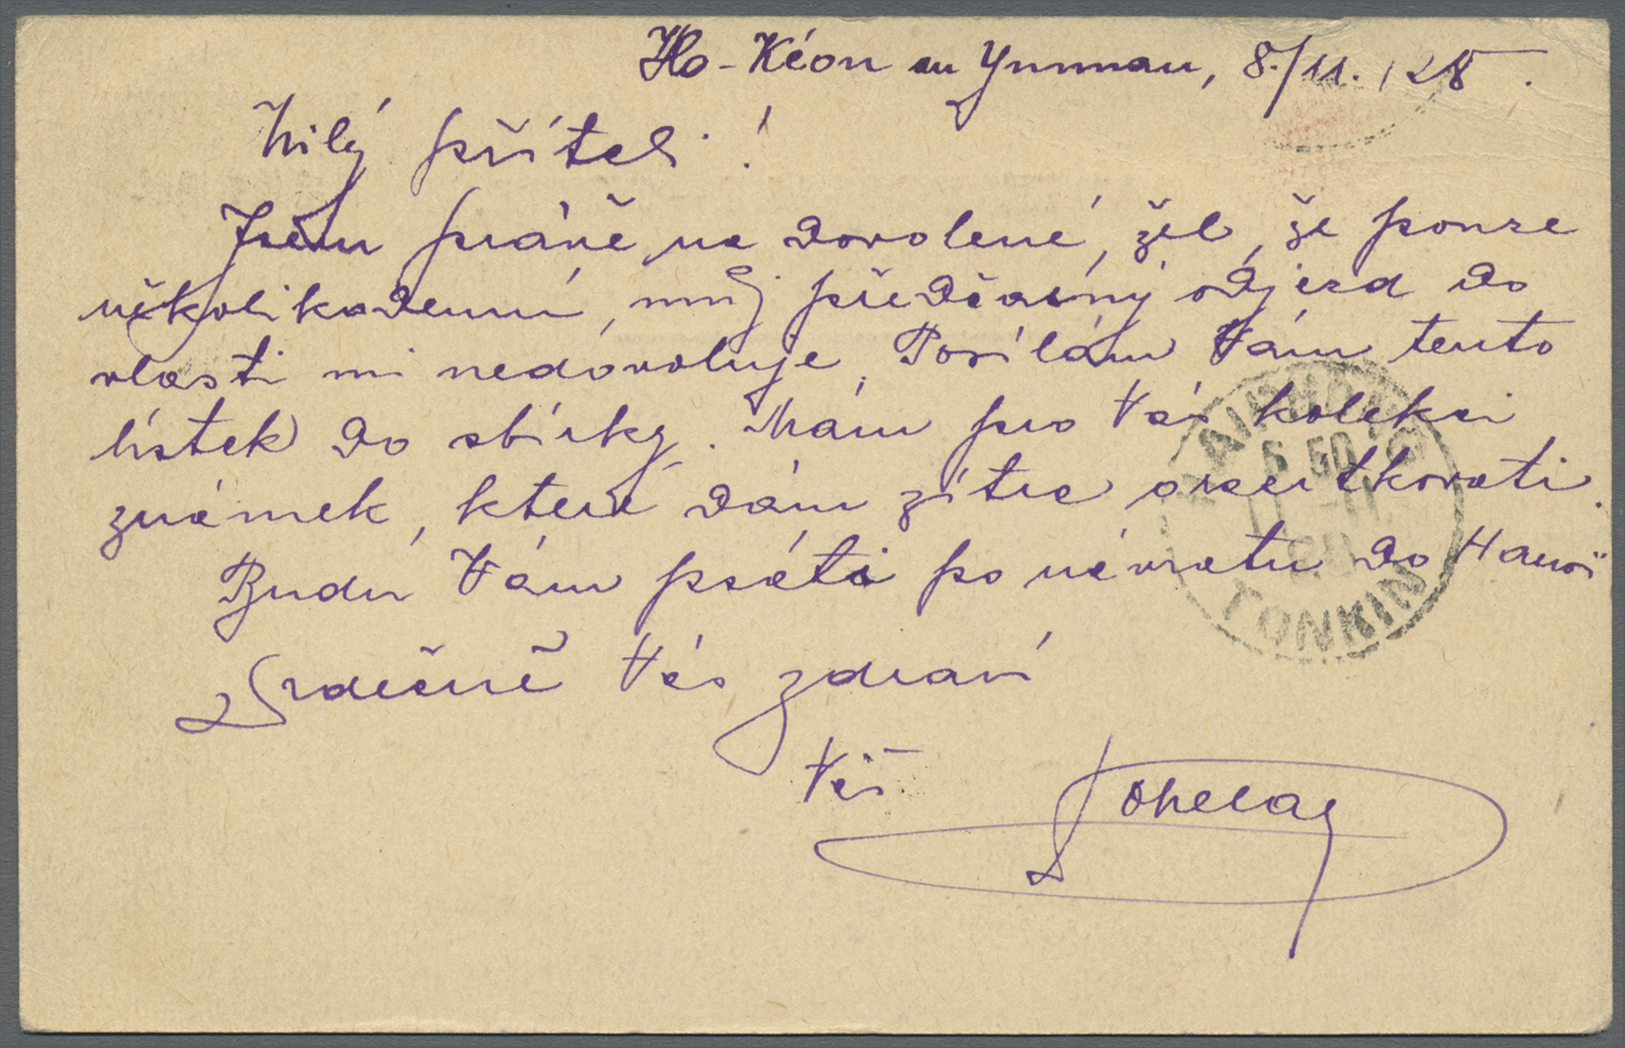 Ho-Kéou au Yunnan, 8./11. 28.
Milý příteli!
Jsem právě na dovolené, žel, že pouze
několikadenní, můj předčasný odjezd do
vlasti mi nedovoluje. Posílám Vám tento
lístek do sbírky. Mám pro Vás kolekci
známek, které dám zítra orazítkovati.
Budu Vám psáti po návratu do Hanoi
Srdečně Vás zdraví
Váš
HAIPHONG
6.50
11 -11
28
TONKIN